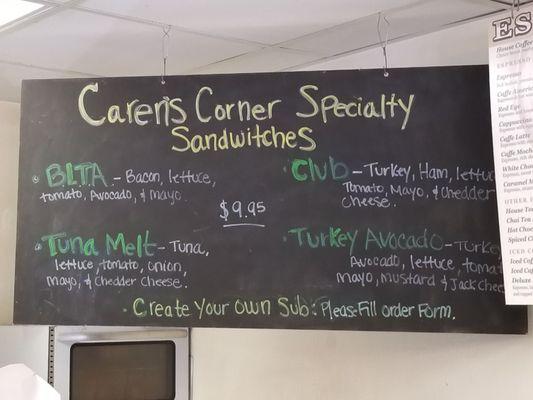 Caren's Corner Specialty
Sandwitches
B.L.T.A - Bacon, lettuce,
tomato, Avocado, & mayo.
Club - Turkey, Ham, lettuc
Tomato, Mayo, & Chedder
Cheese.
$9.95
Tuna Melt - Tuna,
lettuce, tomato, onion,
mayo, & Chedder Cheese.
Turkey Avocado - Turke
Avocado, lettuce, toma
mayo, mustard & Jack Chee
Create Your own Sub: Pleas-Fill order Form.
ES
House Coffee
ESPRESSO
Espresso
Caffe Americ
Red Eye
Cappuccino
Caffe Latte
Caffe Moch
White Choc
Caramel M
OTHER
House Tea
Chai Tea
Hot Choc
Spiced C
ICED C
Iced Coff
Iced Caf
Deluxe